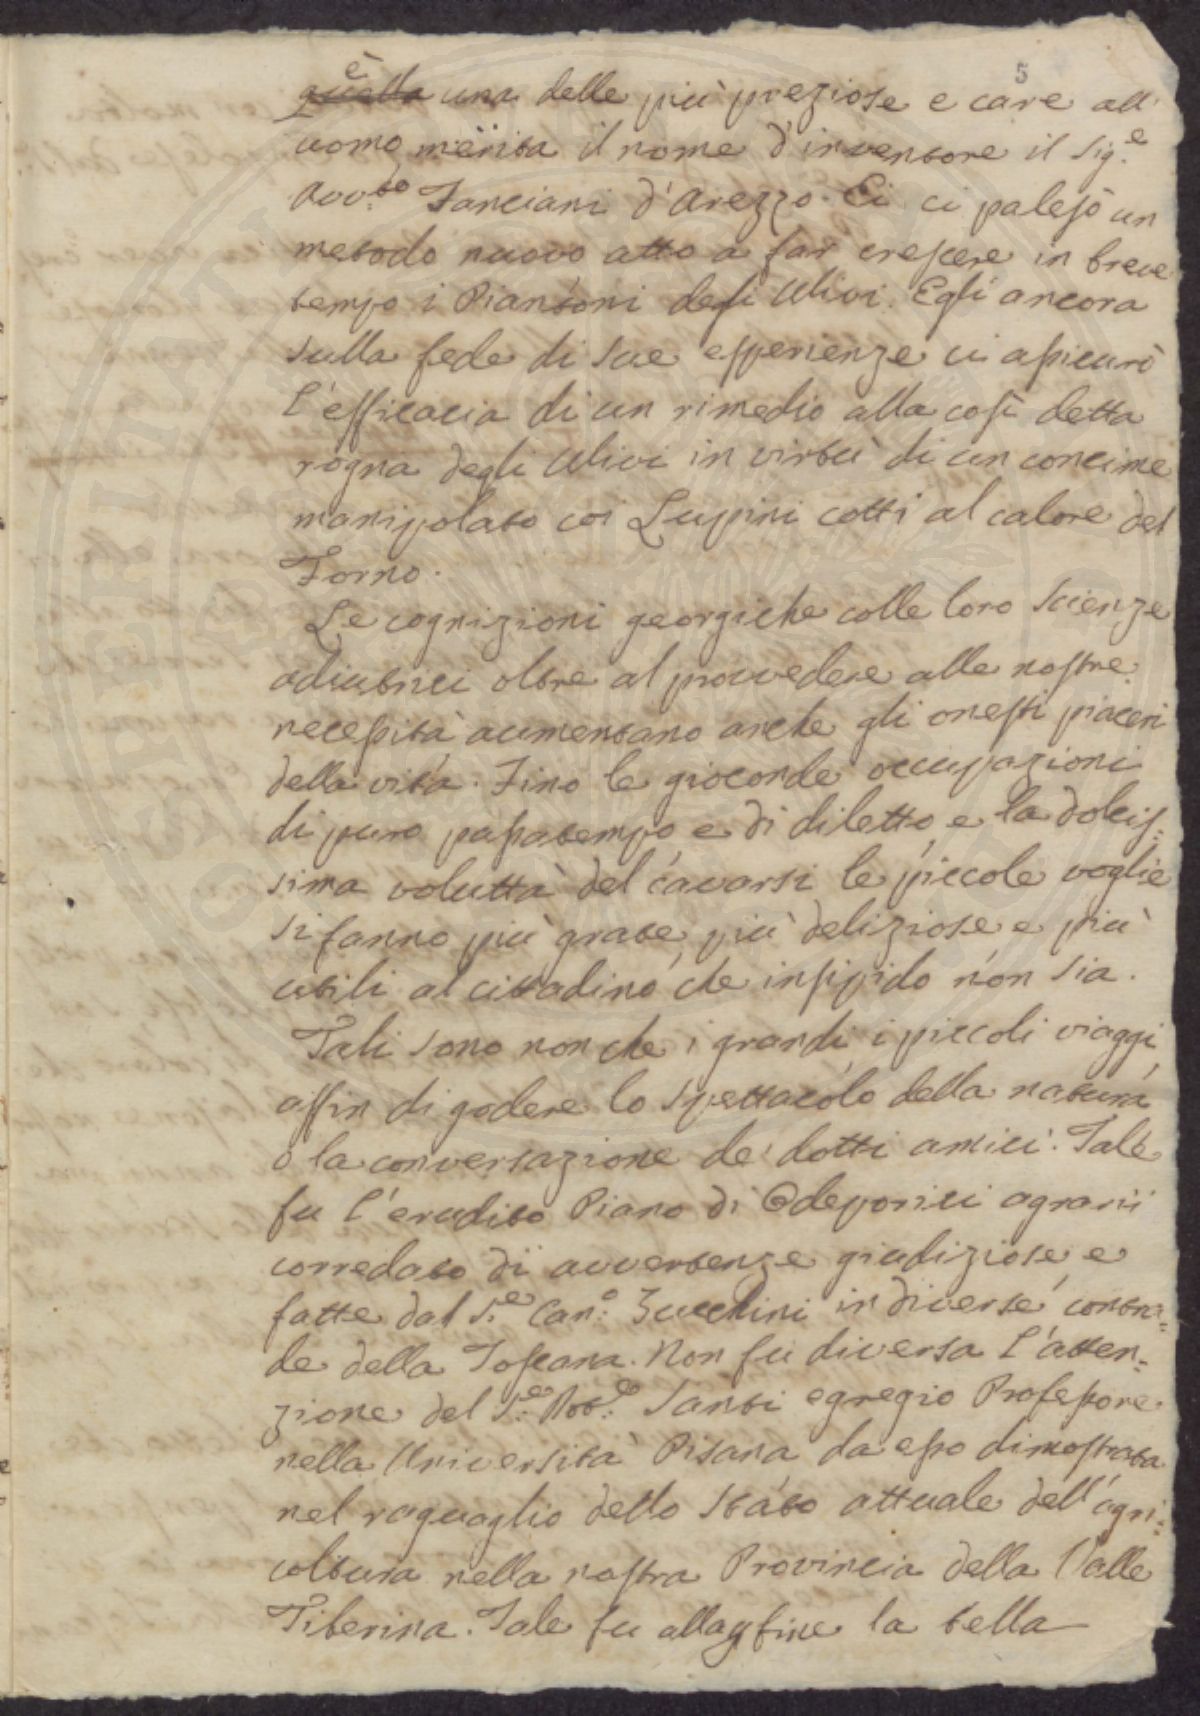 5
è
quella una delle più preziose e care all'
uomo merita il nome d'inventore il Sig.e
Avv.to Fanciani d'Arezzo. Ei ci palesò un
metodo nuovo atto a far crescere in breve
tempo i Piantoni degli Ulivi. Egli ancora
sulla fede di sue esperienze ci assicurò
l'efficacia di un rimedio alla così detta
rogna degli Ulivi in virtù di un concime
manipolato coi Lupini cotti al calore del
Forno.
Le cognizioni georgiche colle loro Scienze
adiutrici oltre al provvedere alle nostre
necessità aumentano anche gli onesti piaceri
della vita. Fino le gioconde occupazioni
di puro passatempo e di diletto, e la dolcis=
sima voluttà del cavarsi le piccole voglie
si fanno più grate, più deliziose e più
utili al cittadino, che insipido non sia.
Tali sono non che i grandi i piccoli viaggi,
affin di godere lo spettacolo della natura
o la conversazione de' dotti amici. Tale
fu l'erudito Piano di Odeporici agrarii
corredato di avvertenze giudiziose e
fatte dal S.e Can.o Zucchini in diverse contra=
de della Toscana. Non fu diversa l'atten=
zione del S.e Dot.e Santi egregio Professore
nella Università Pisana da esso dimostrata
nel raguaglio dello stato attuale dell'agri=
coltura nella nostra Provincia della Valle
Tiberina. Tale fu alla fine la bella